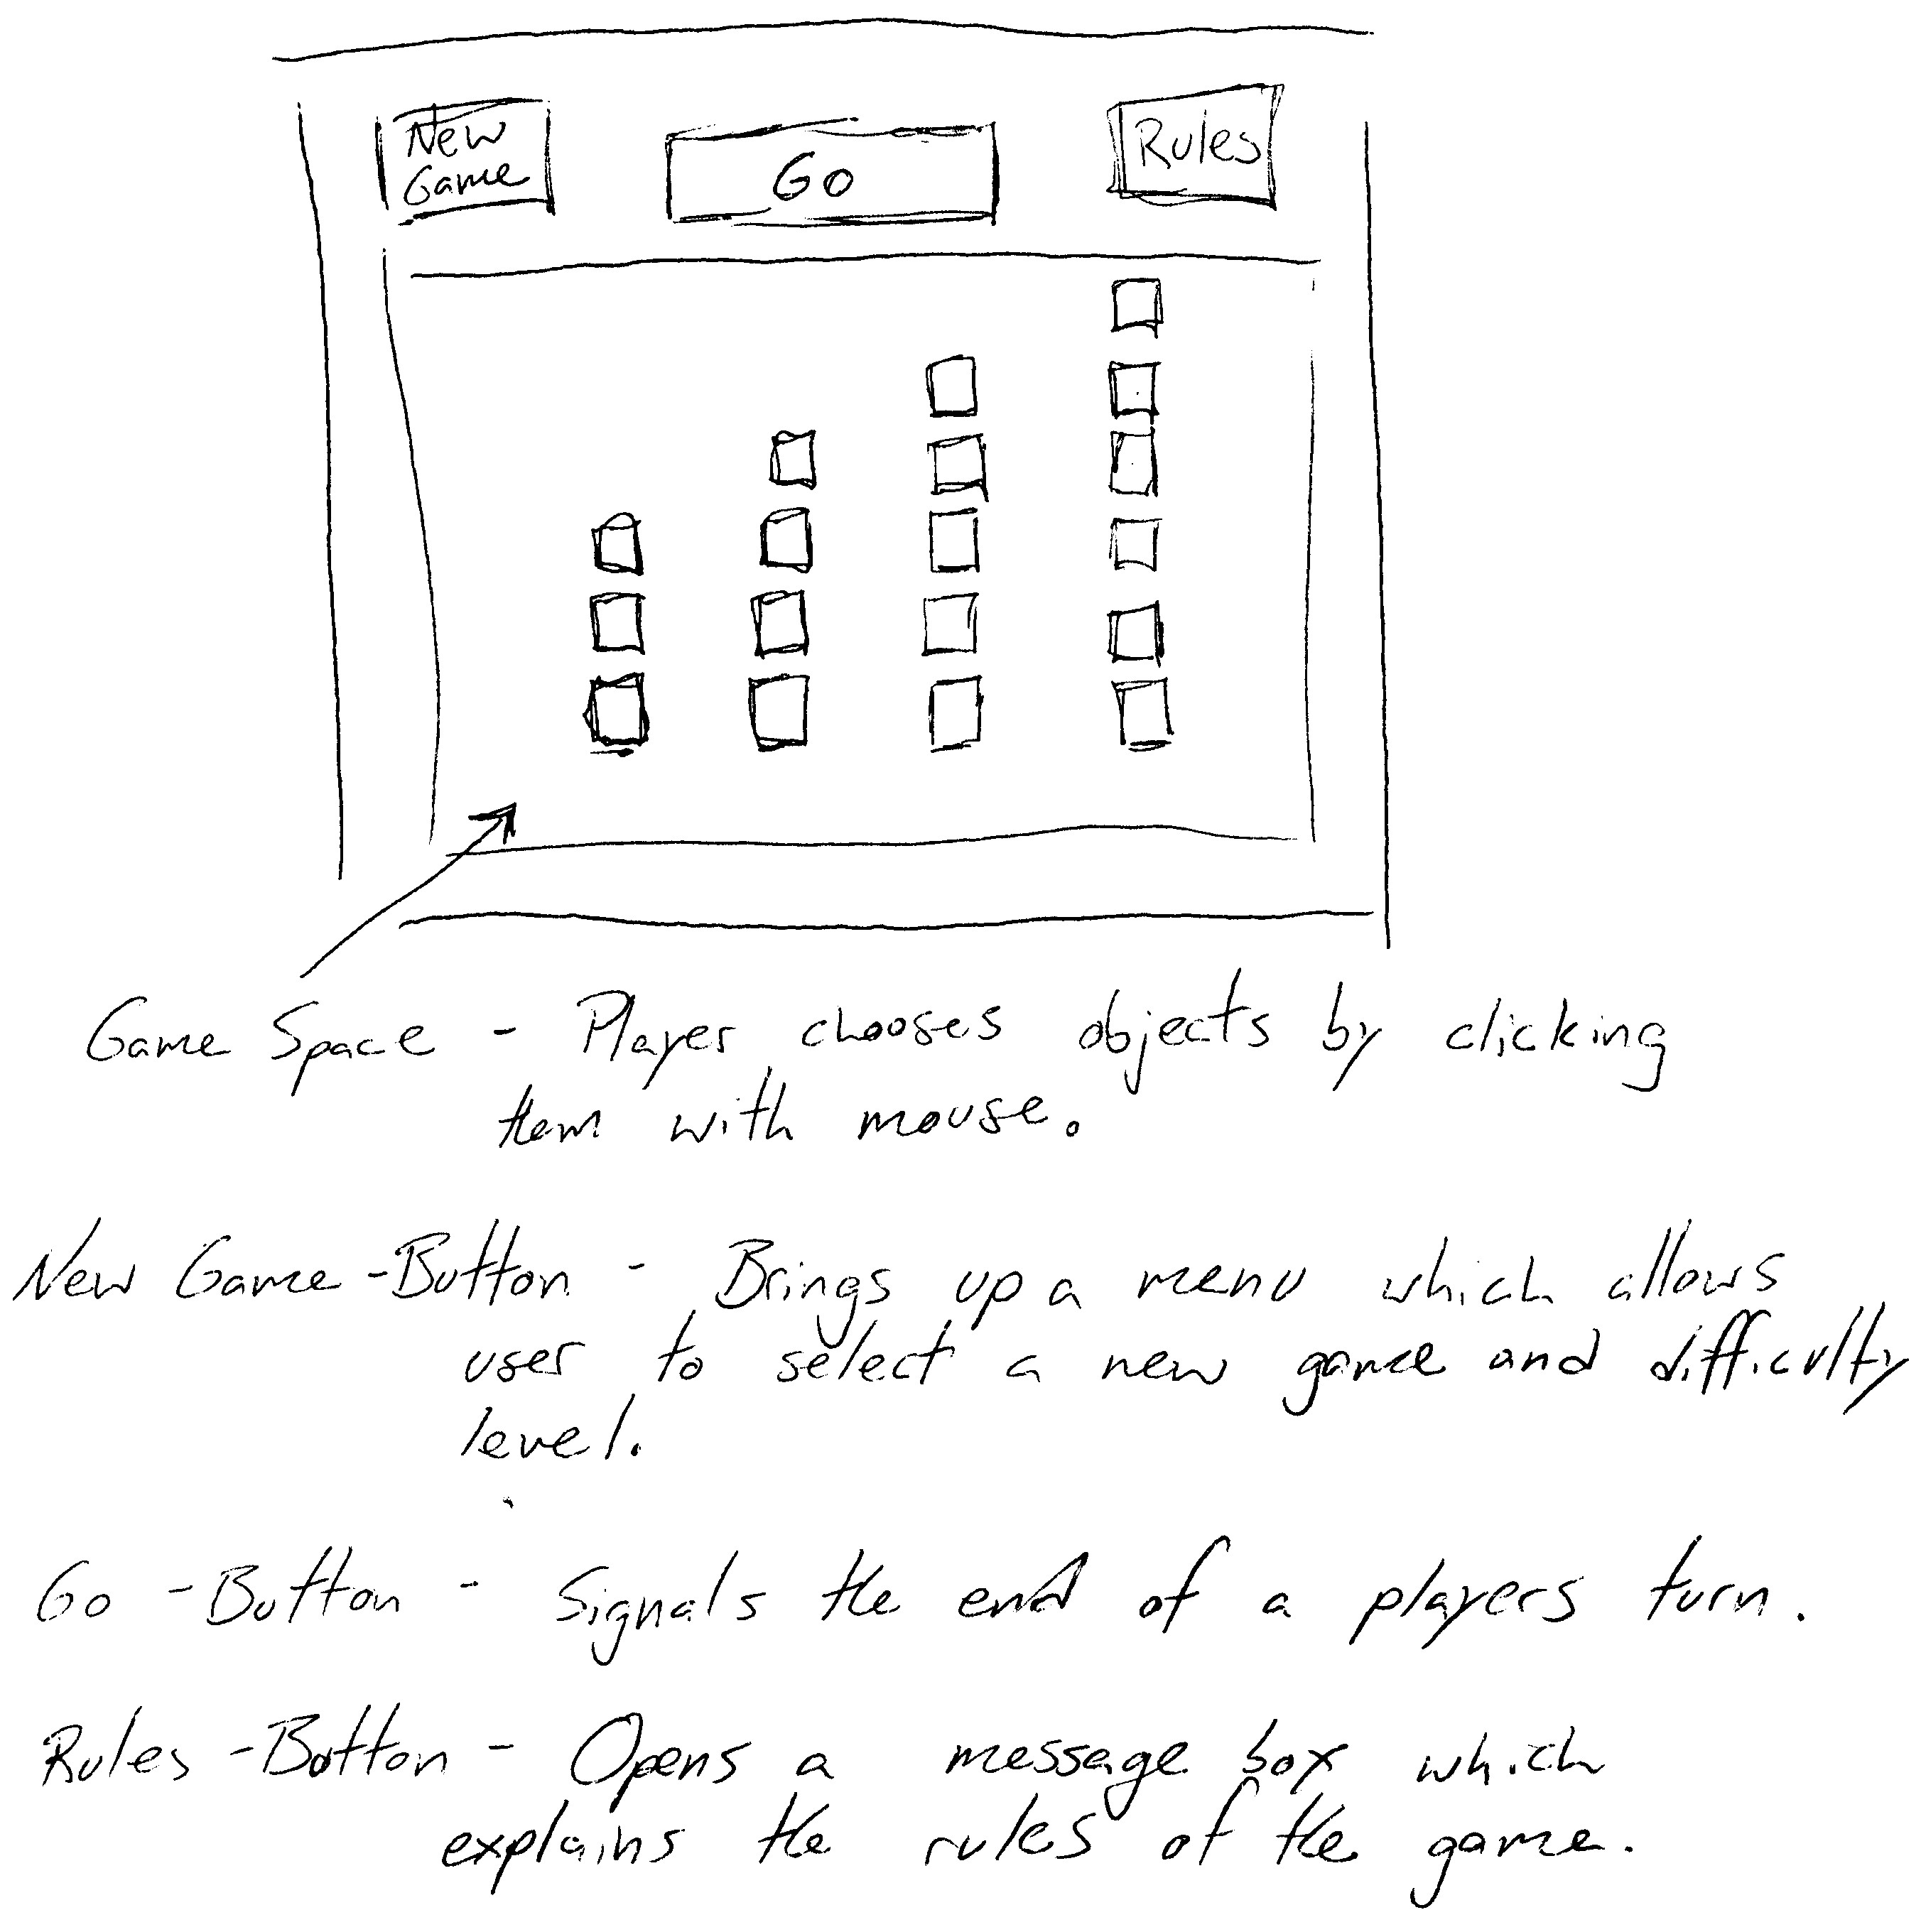 New
Game
Go
Rules
Game Space - Player chooses objects by clicking
them with mouse.
New Game -Button - Brings up a menu which allows
user to select a new game and difficulty
level.
Go -Button - Signals the end of a players turn.
Rules -Button - Opens a message box which
explains the rules of the game.